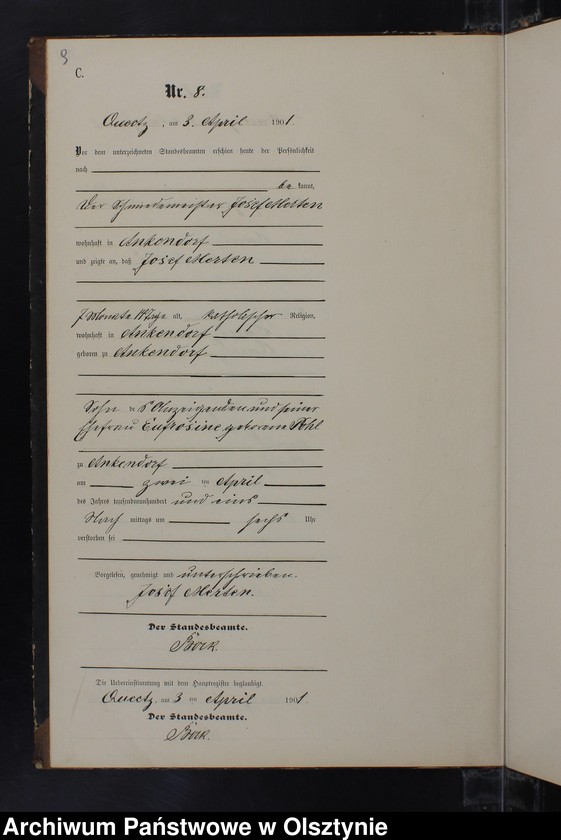 9
C.
Nr. 8.
Queetz, am 3. April 1901.
Vor dem unterzeichneten Standesbeamten erschien heute der Persönlichkeit
nach
be kannt,
Der Schmiedemeister Josef Merten
wohnhaft in Ankendorf
und zeigte an, daß Josef Merten
7 Monate 14 Tage alt, katholischer Religion,
wohnhaft in Ankendorf
geboren zu Ankendorf
Sohn des Anzeigenden und seiner
Ehefrau Eufrosine geborene Pohl
zu Ankendorf
am zwei ten April
des Jahres tausendneunhundert und eins
Nach mittags um sechs Uhr
verstorben sei
Vorgelesen, genehmigt und unterschrieben.
Josef Merten.
Der Standesbeamte.
Böck.
Die Uebereinstimmung mit dem Hauptregister beglaubigt.
Queetz, am 3 ten April 1901
Der Standesbeamte.
Böck.
Archiwum Państwowe w Olsztynie